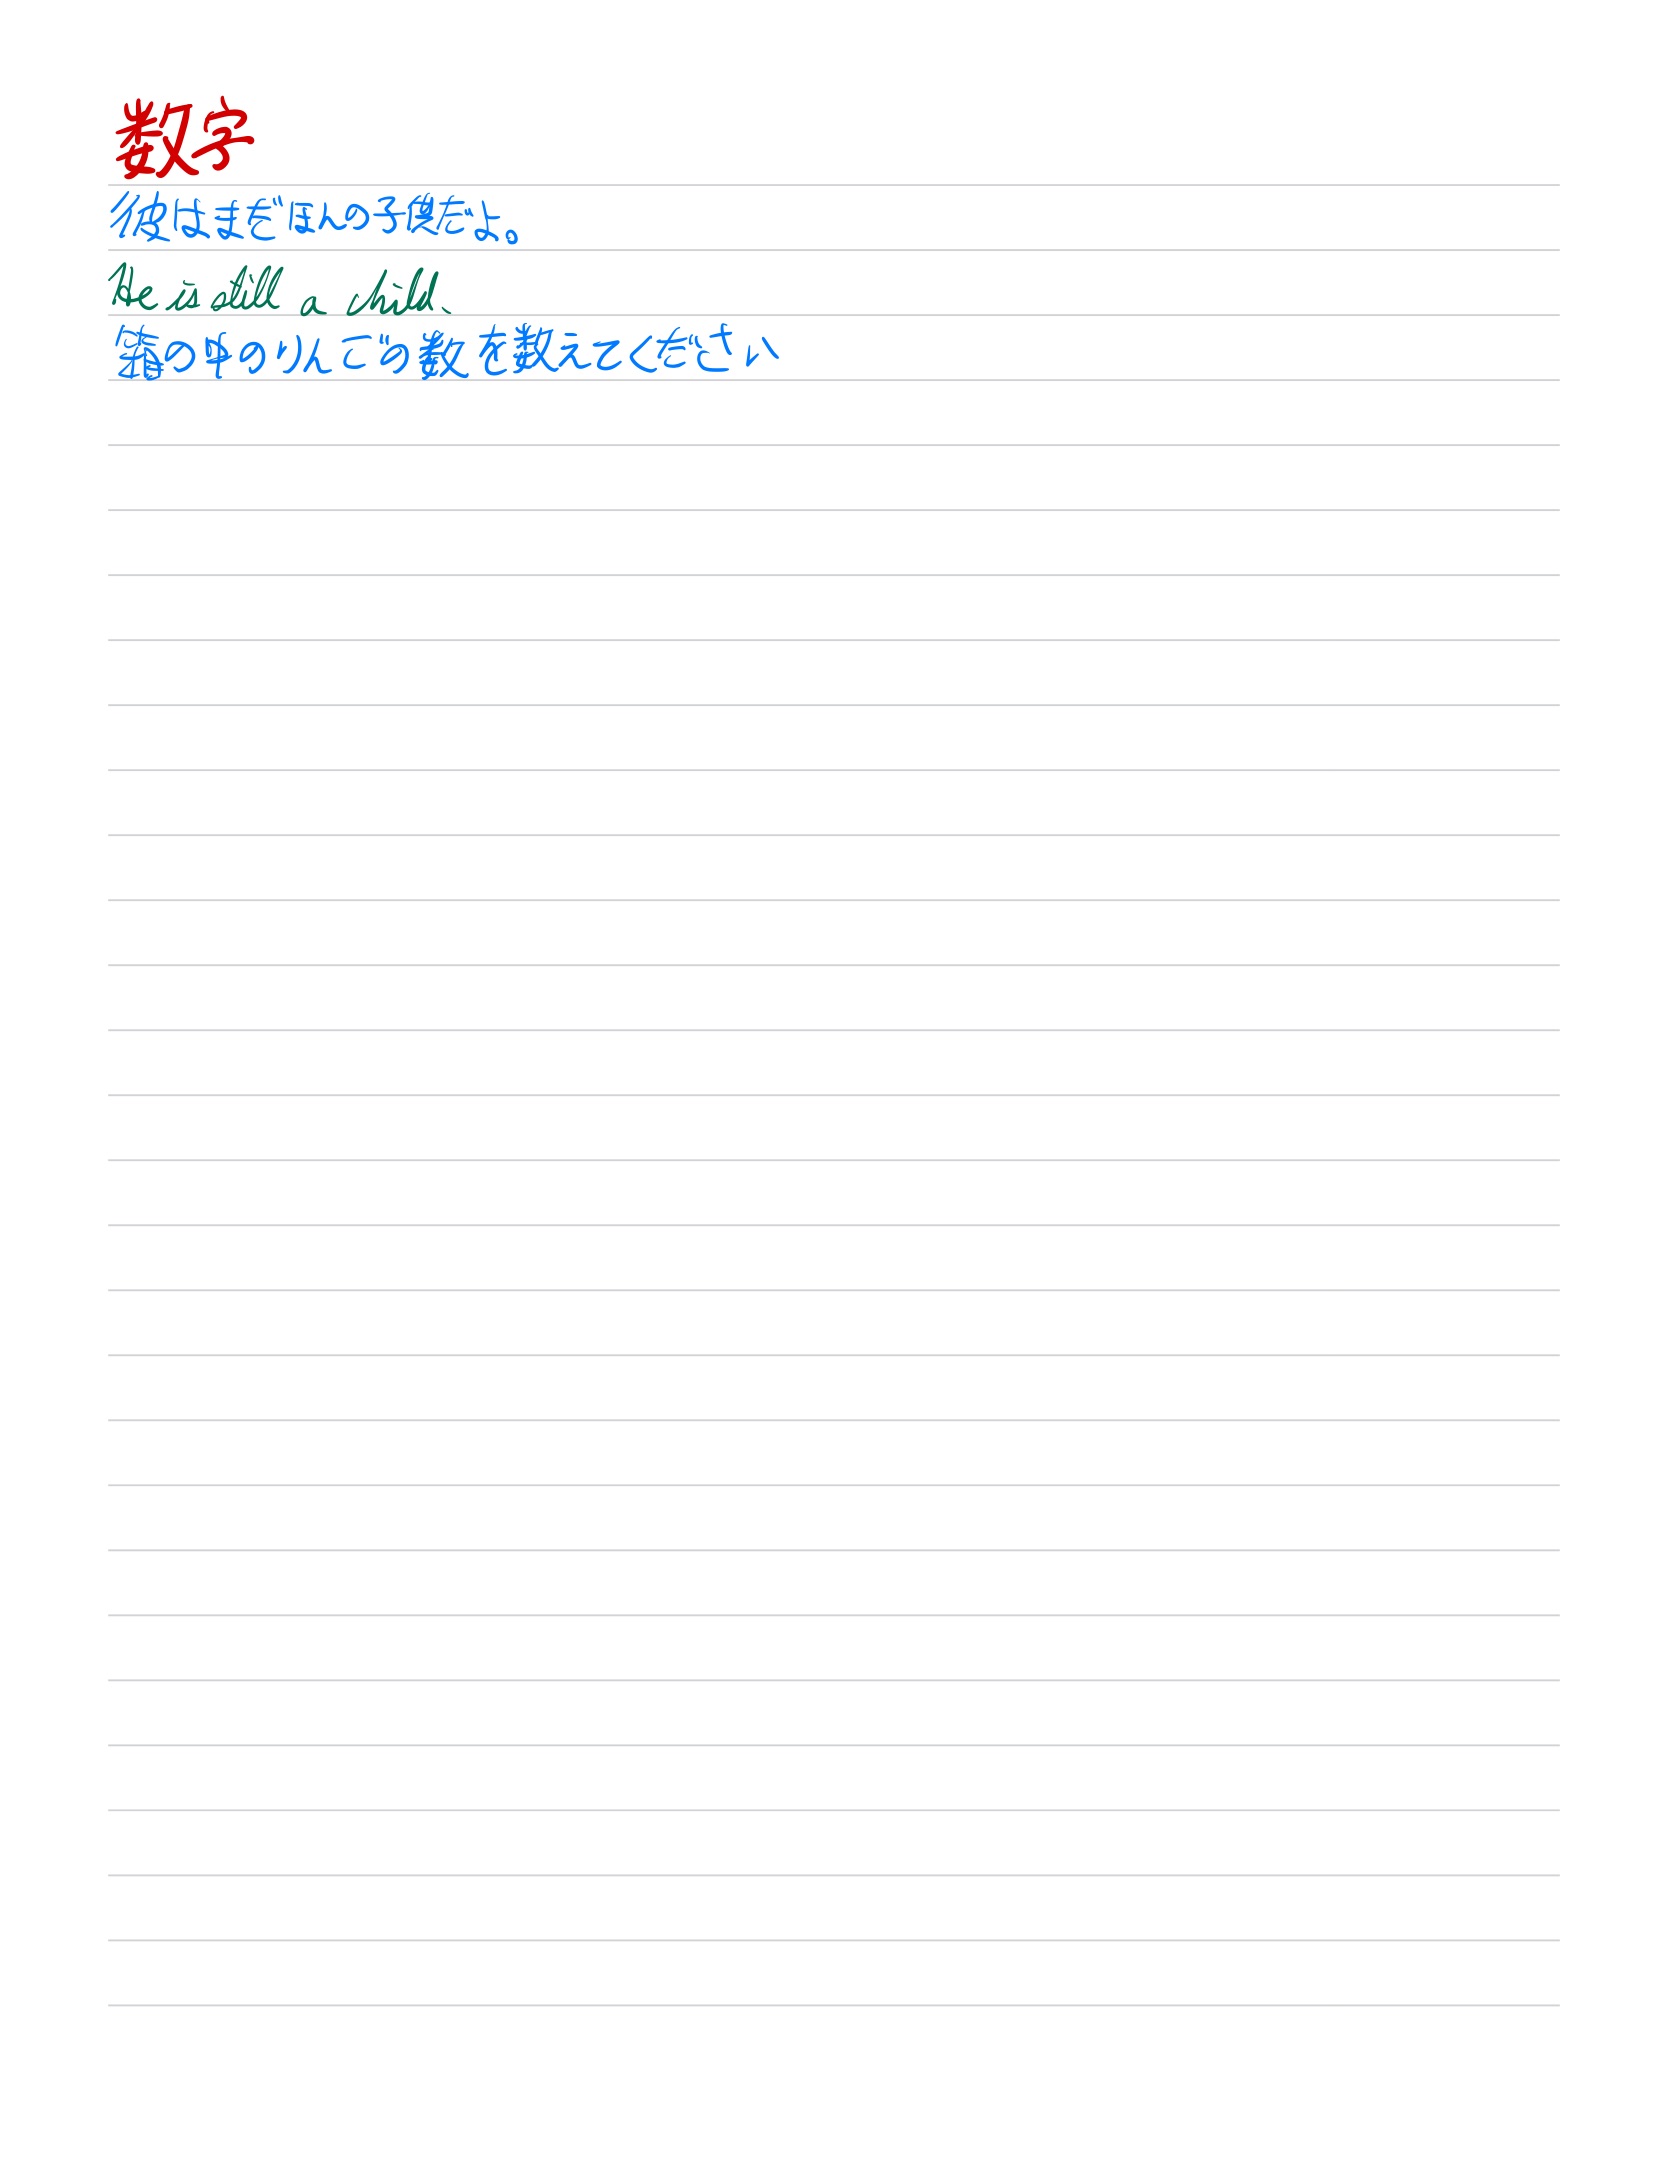 数字
彼はまだほんの子供だよ。
He is still a child.
箱の中のりんごの数を数えてください